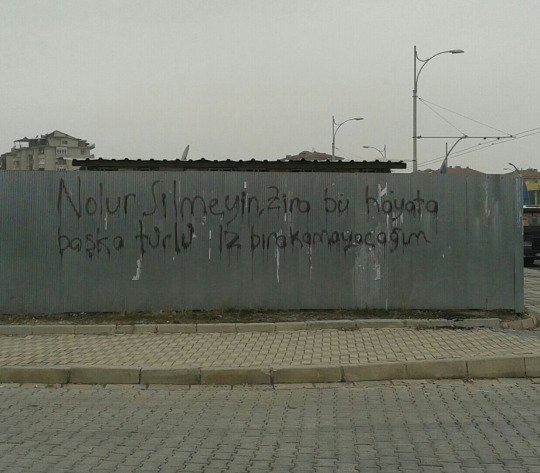 Nolur, Silmeyin, zira bu hayata
başka türlü iz bırakamayacağım